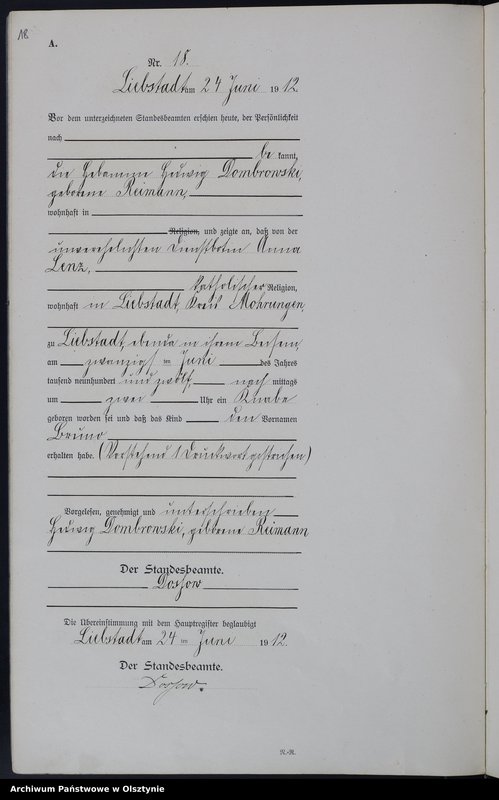 18
A.
Nr. 18.
Liebstadt am 24 Juni 1912.
Vor dem unterzeichneten Standesbeamten erschien heute, der Persönlichkeit
nach
be kannt,
die Hebamme Hedwig Dombrowski,
geborene Reimann,
wohnhaft in
Religion, und zeigte an, daß von der
unverehelichten Dienstbotin Anna
Lenz,
katholischer Religion,
wohnhaft in Liebstadt, Kreis Mohrungen,
zu Liebstadt, ebenda in ihrem Beisein,
am zwanzigsten Juni des Jahres
tausend neunhundert und zwölf nach mittags
um zwei Uhr ein Knabe
geboren worden sei und daß das Kind den Vornamen
Bruno
erhalten habe. (Vorstehend 1 Druckwort gestrichen)
Vorgelesen, genehmigt und unterschrieben
Hedwig Dombrowski, geborene Reimann
Der Standesbeamte.
Die Übereinstimmung mit dem Hauptregister beglaubigt
Liebstadt am 24 ten Juni 1912.
Der Standesbeamte.
Archiwum Państwowe w Olsztynie